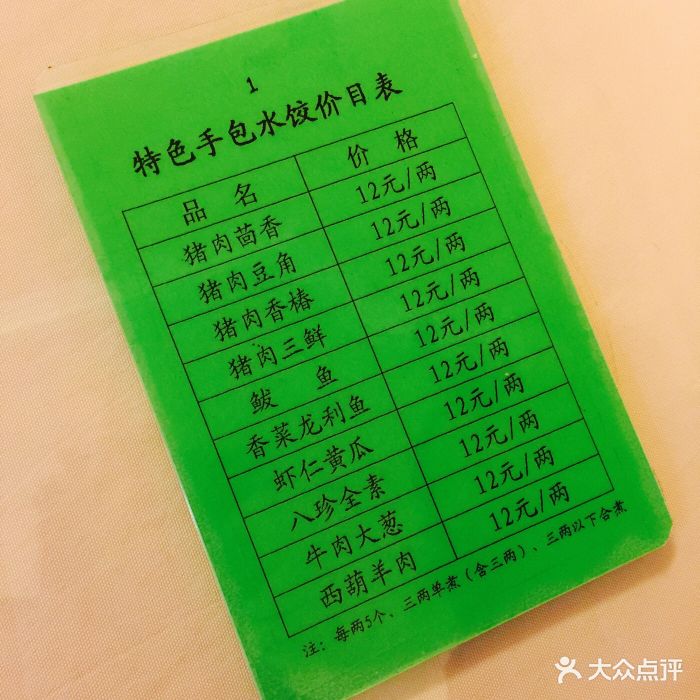 1
特色手包水饺价目表
品 名 价 格
猪肉茴香 12元/两
猪肉豆角 12元/两
猪肉香椿 12元/两
猪肉三鲜 12元/两
鲅 鱼 12元/两
香菜龙利鱼 12元/两
虾仁黄瓜 12元/两
八珍全素 12元/两
牛肉大葱 12元/两
西葫羊肉 12元/两
注：每两5个、三两单煮（含三两）、三两以下合煮
大众点评